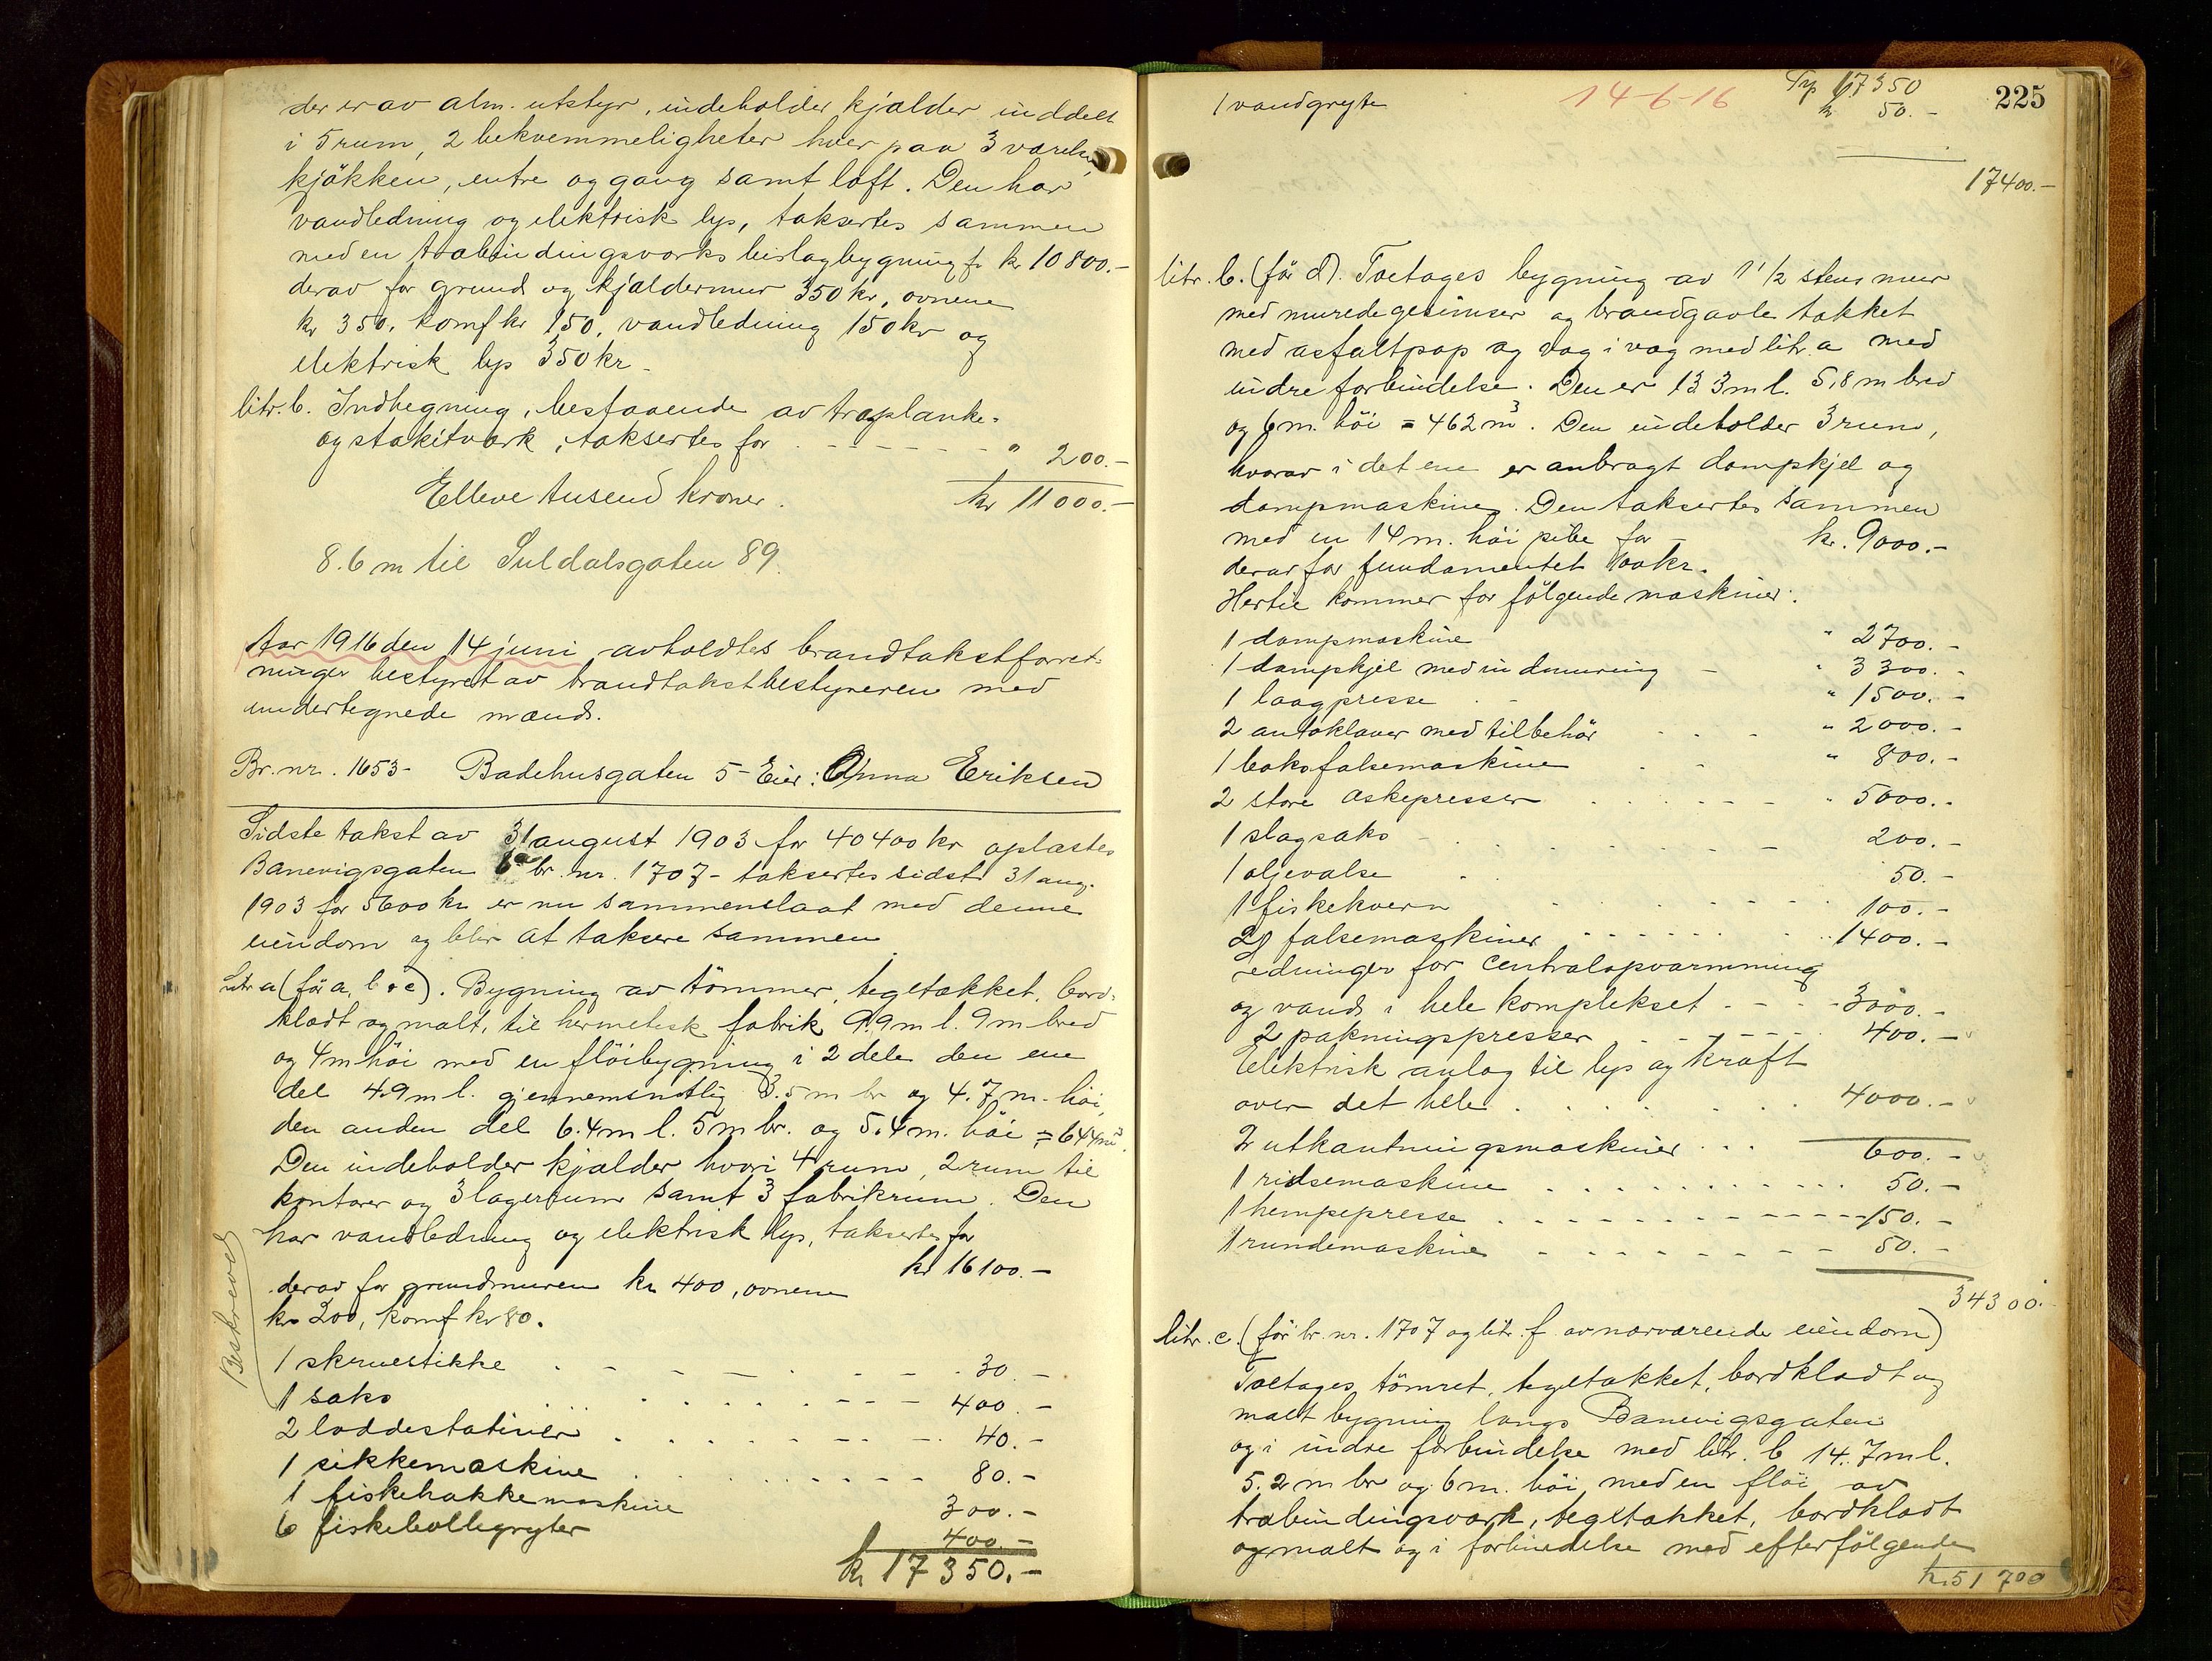 der er av alm. utstyr, indeholder kjælder inddelt
i 5 rum, 2 bekvemmeligheter hver paa 3 værelser,
kjökken, entre og gang samt loft. Den har
vandledning og elektrisk lys, taksertes sammen
med en træbindingsverks bislagbygning f. kr 10800.-
derav for grund og kjældermur 350 kr, ovnene
kr 350, komf kr 150, vandledning 150 kr og
elektrisk lys 350 kr.
litr. b. Indhegning, bestaaende av træplanke-
og stakitværk, taksertes for " 200.-
Elleve tusend kroner. kr 11000.-
8.6 m til Suldalsgaten 89.
Aar 1916 den 14 juni avholdtes brandtakstforret-
ninger bestyret av brandtakstbestyreren med
undertegnede mænd.
Br. nr. 1653- Badehusgaten 5- Eier: Anna Eriksen
Sidste takst av 31 august 1903 for 40400 kr oplæstes
Banevigsgaten 6a br. nr. 1707- taksertes sidst 31 aug.
1903 for 5600 kr er nu sammenslaat med denne
eiendom og blir at taksere sammen
Litr a (för a, b & e). Bygning av tömmer, tegltækket, bord-
klædt og malt, til hermetisk fabrik 9.9 m l. 9 m bred
og 4 m höi med en flöibygning i 2 dele den ene
del 4.9 m l. gjennemsnitlig 3.5 m br og 4.7 m. höi,
den anden del 6.4 m l. 5 m br. og 5.4 m. höi = 644 m³.
Den indeholder kjælder hvori 4 rum, 2 rum til
kontorer og 3 lagerrum samt 3 fabrikrum. Den
har vandledning og elektrisk lys, taksertes for
kr 16100.-
derav for grundmuren kr 400, ovnene
kr 200, komf kr 80.
Beskrevet
1 skruestikke 30.-
1 saks 400.-
2 loddestativer 40.-
1 sikkemaskine 80.-
1 fiskehakkemaskine 300.-
6 fiskebollegryter 400.-
kr 17350.-
225
14-6-16
Trp 17350
1 vandgryte kr 50.-
17400.-
litr. b. (för d). Toetages bygning av 1 1/2 stens mur
med murede gesimser og brandgavle tækket
med asfaltpap og væg i væg med litr. a med
indre forbindelse. Den er 13 3 m l. 5,8 m bred
og 6 m. höi = 462 m³. Den indeholder 3 rum,
hvorav i det ene er anbragt dampkjel og
dampmaskine. Den taksertes sammen
med en 14 m. höi pibe for - kr. 9000.-
derav for fundamentet 100 kr.
Hertil kommer for fölgende maskiner:
1 dampmaskine " 2700.-
1 dampkjel med indmuring - " 3300.-
1 laagpresse " 1500.-
2 autoklaver med tilbehör " 2000.-
1 boksfalsemaskine " 800.-
2 store æskepresser " 5000.-
1 slagsaks 200.-
1 oljevalse 50.-
1 fiskekvern 100.-
2 falsemaskiner 1400.-
Ledninger for centralopvarmning
og vand i hele komplekset 3000.-
2 pakningspresser 400.-
Elektrisk anlæg til lys og kraft
over det hele 4000.-
2 utkantningsmaskiner 600.-
1 ridsemaskine 50.-
1 hempepresse 150.-
1 rundemaskine 50.-
34300.
litr. c. (för br. nr. 1707 og litr. f av nærværende eiendom)
Toetages, tömret, tegltækket, bordklædt og
malt bygning langs Banevigsgaten
og i indre forbindelse med litr. b 14.7 m l.
5.2 m br og 6 m. höi, med en flöi av
træbindingsværk, tegltækket, bordklædt
og malt og i forbindelse med efterfölgende
kr. 51700